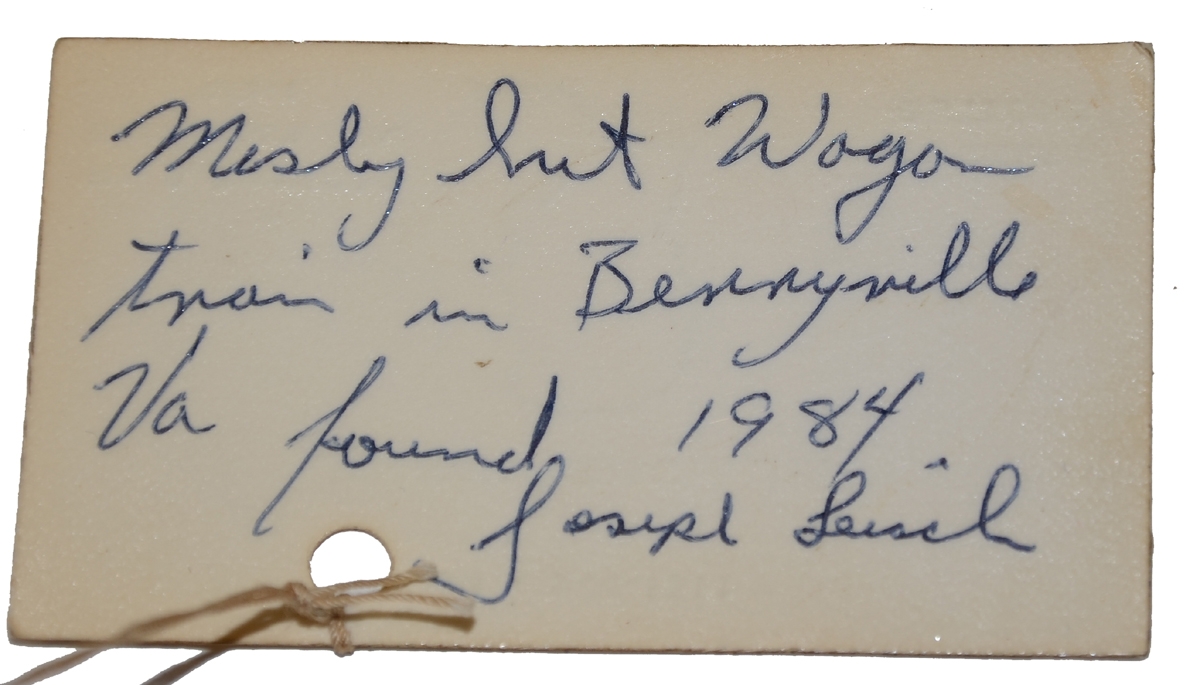 Mosby hit Wagon
train in Berryville
Va found 1984
Joseph